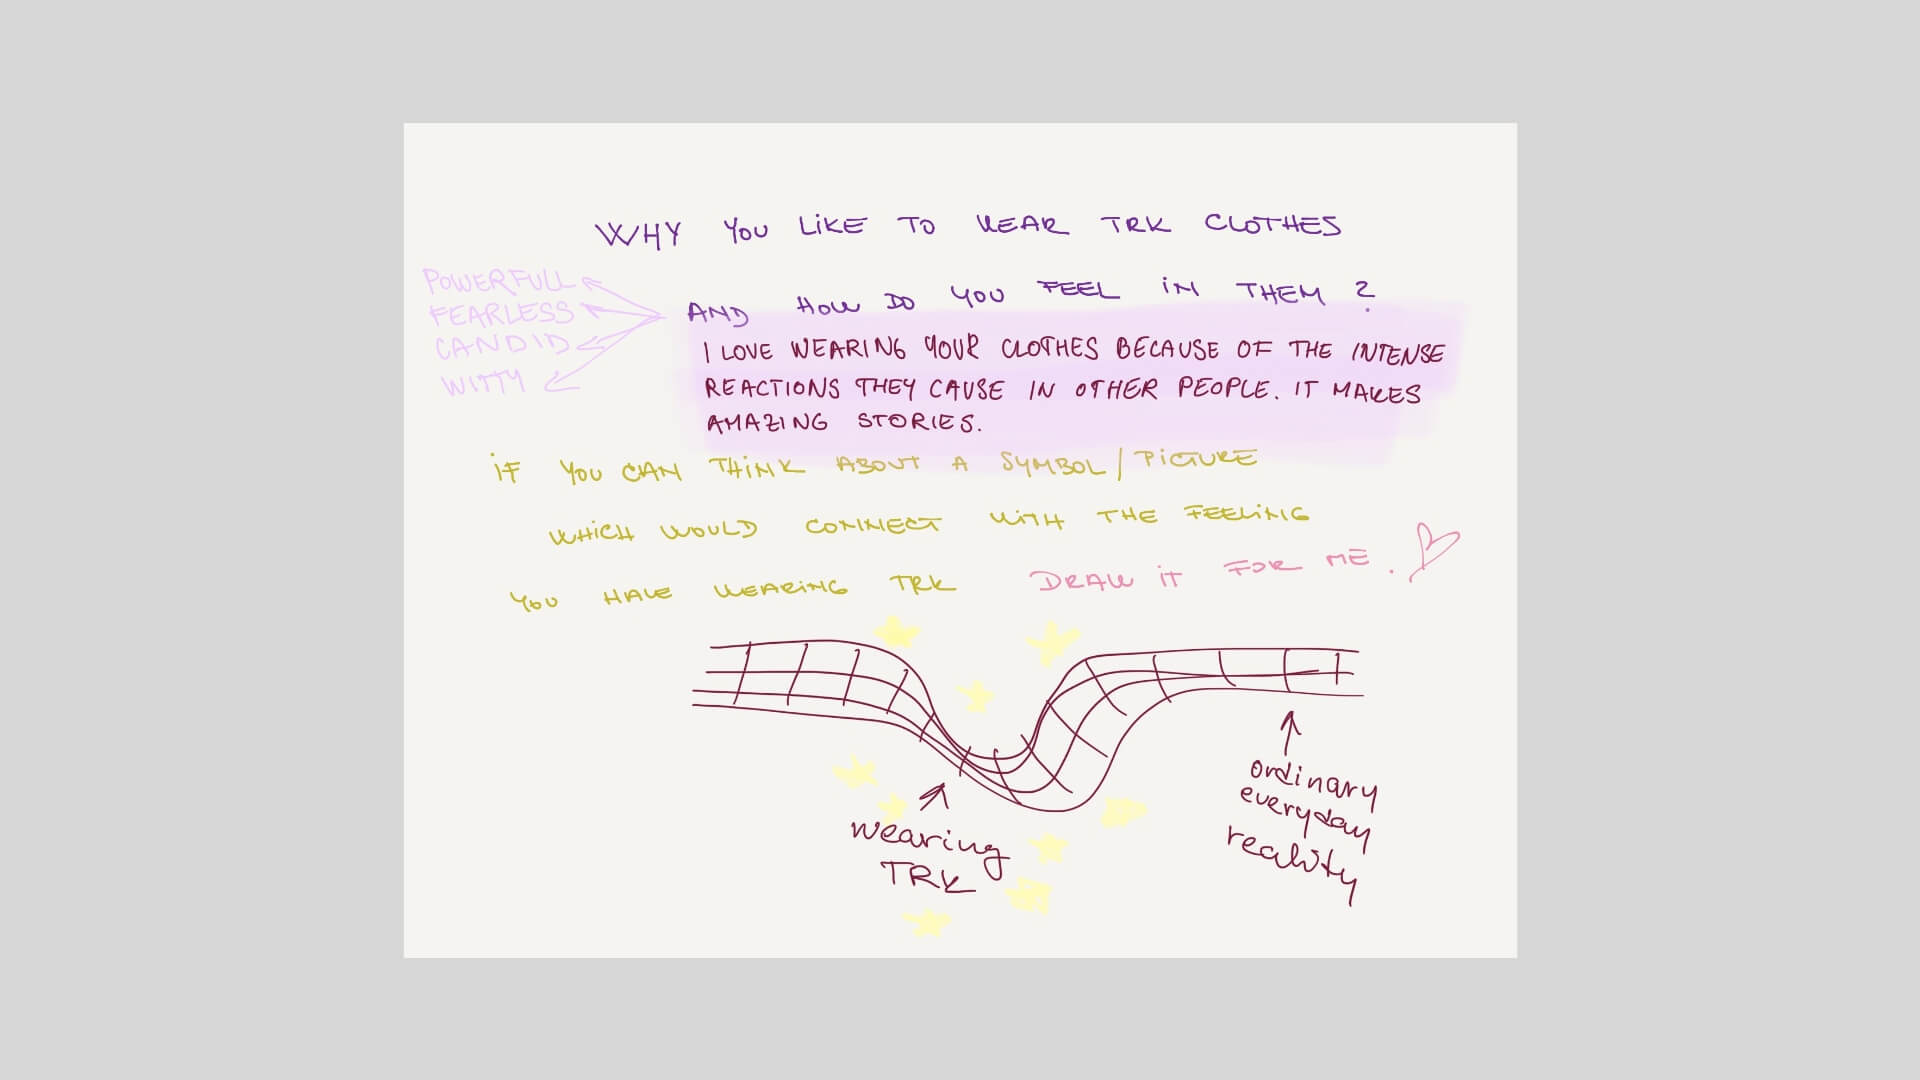 WHY YOU LIKE TO WEAR TRK CLOTHES
AND HOW DO YOU FEEL IN THEM?
POWERFULL
FEARLESS
CANDID
WITTY
I LOVE WEARING YOUR CLOTHES BECAUSE OF THE INTENSE
REACTIONS THEY CAUSE IN OTHER PEOPLE. IT MAKES
AMAZING STORIES.
IF YOU CAN THINK ABOUT A SYMBOL/PICTURE
WHICH WOULD CONNECT WITH THE FEELING
YOU HAVE WEARING TRK DRAW IT FOR ME.
wearing
TRK
ordinary
everyday
reality